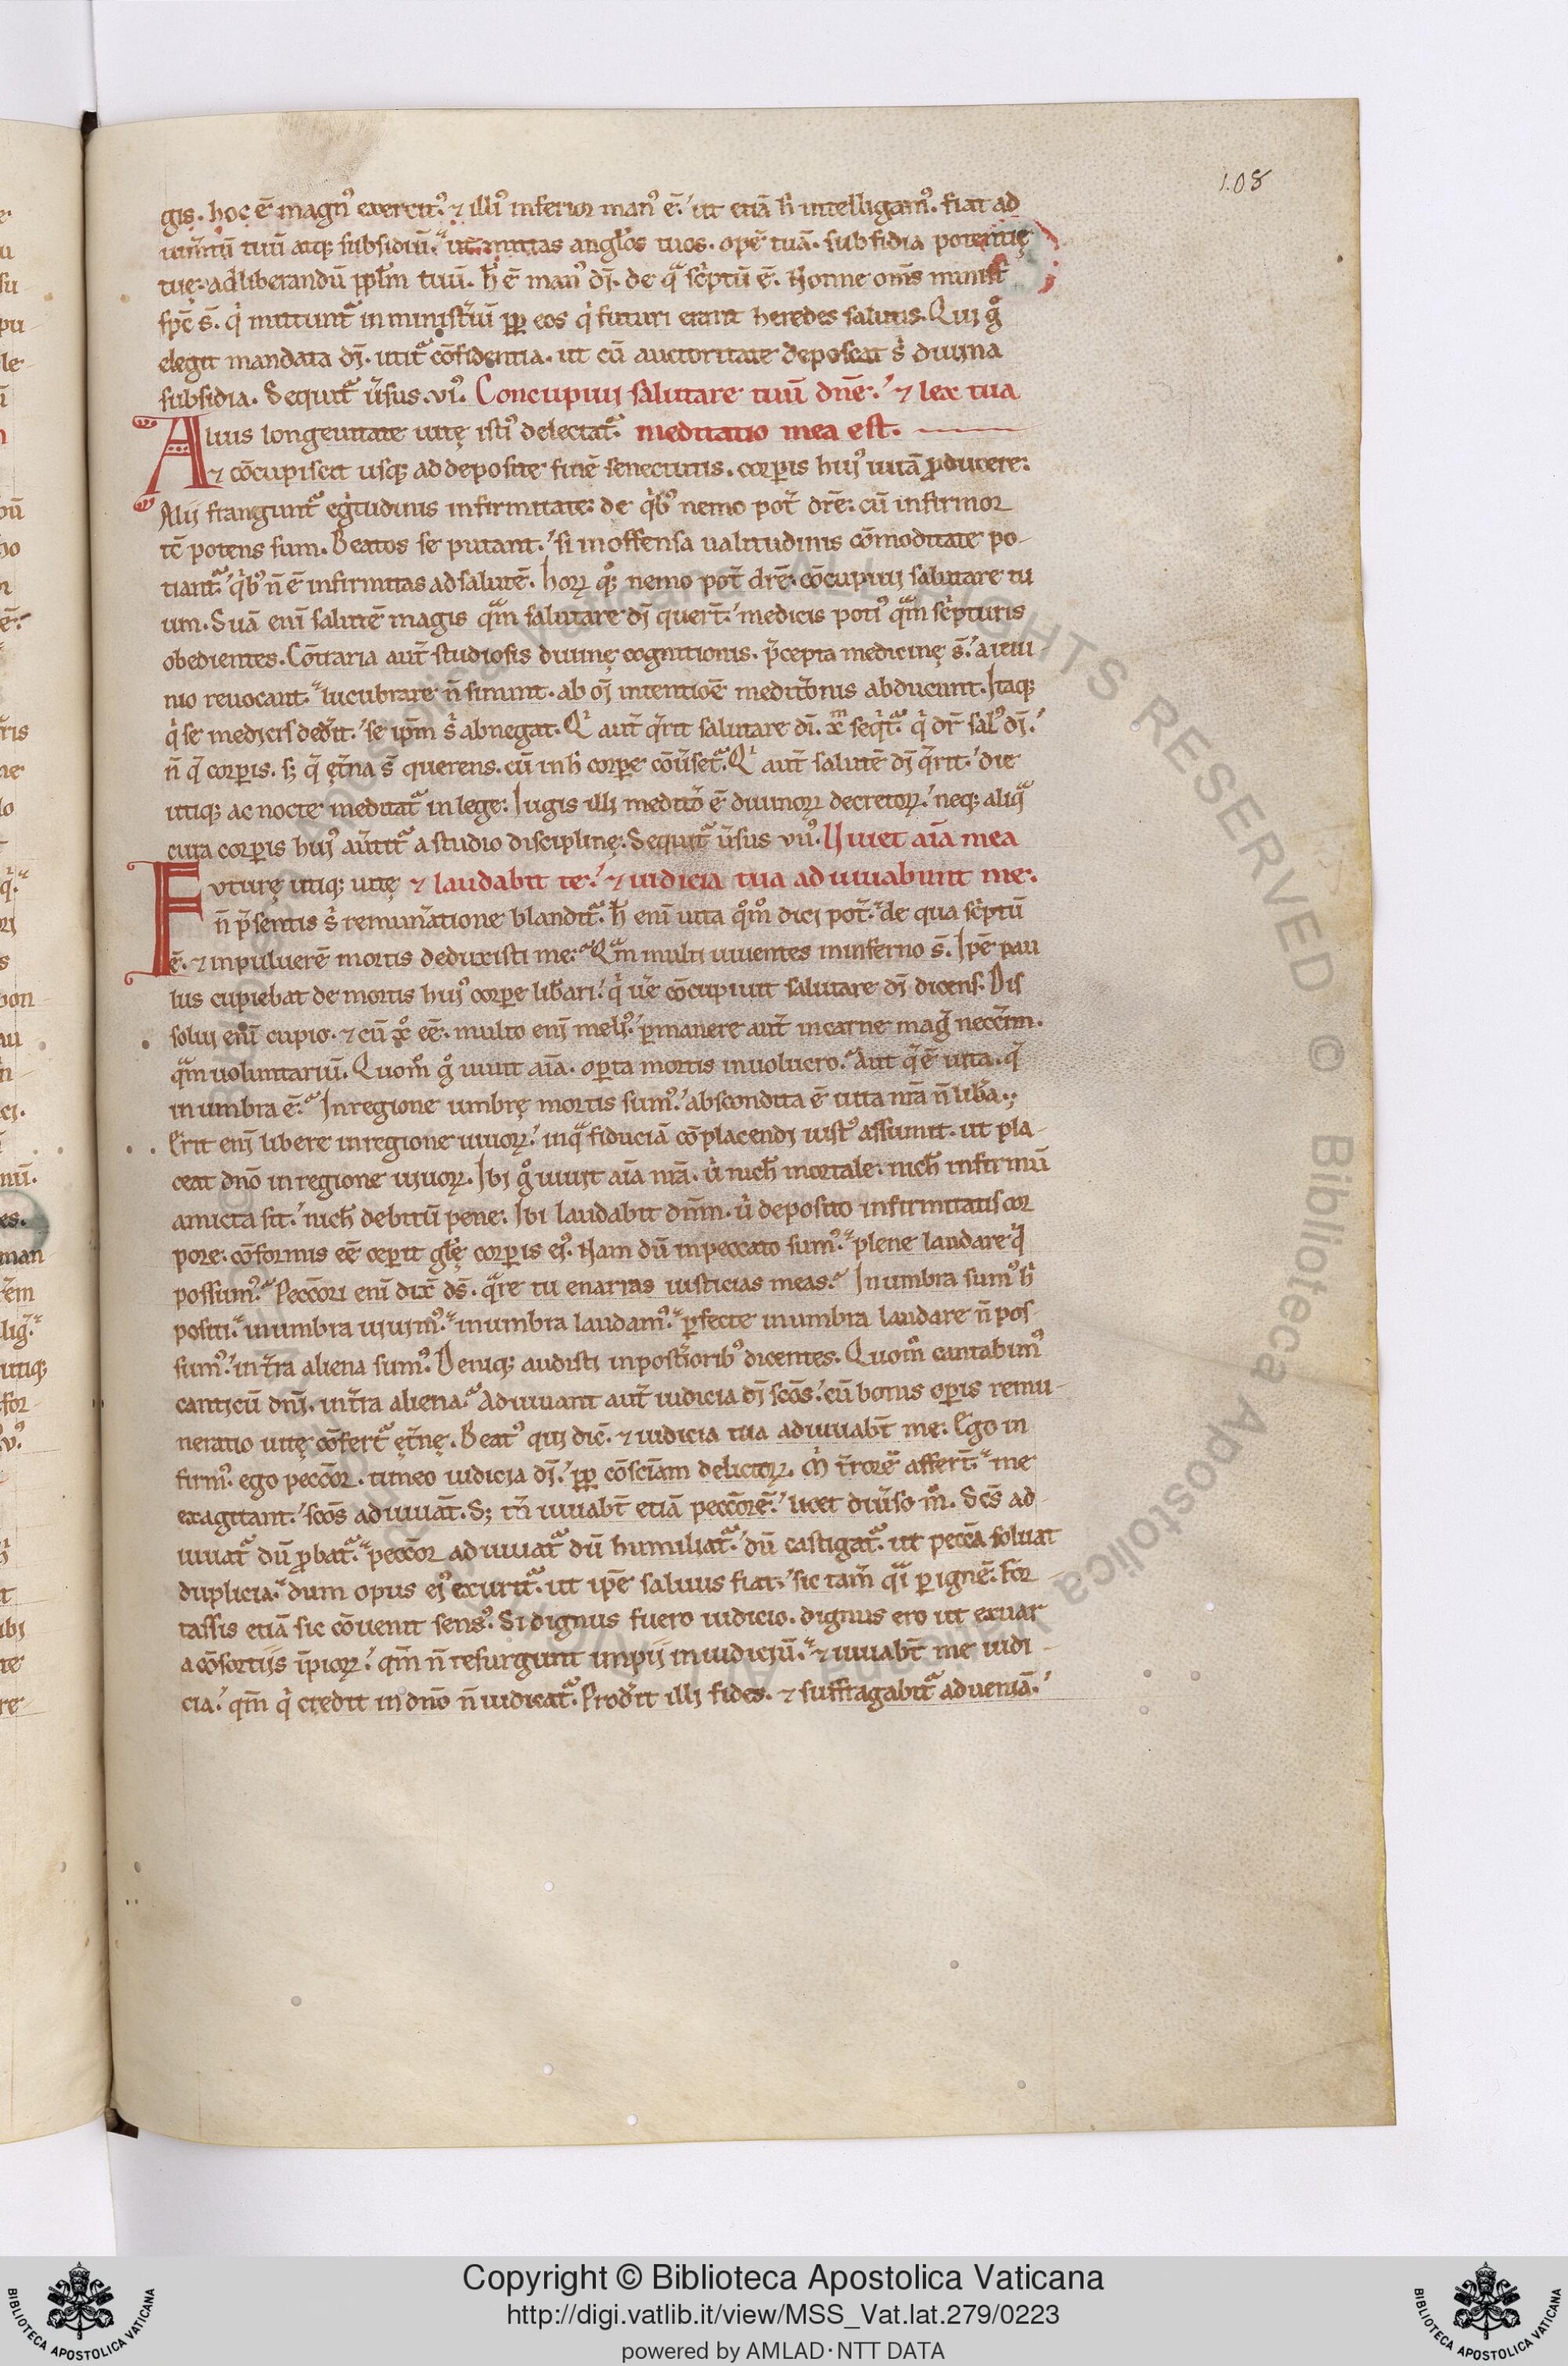 108
gis. hoc ē magn᷒ exercit᷒. ⁊ illi᷒ inferior man᷒ ē. ut etiā h̄ intelligam᷒. fiat ad
tuū atq; subsidiū. ut mittas angl̄os tuos. opē tuā. subsidia potentię
tuę. ad liberandū ppl̄m tuū. h̄ ē man᷒ dī. de qᵃ sc̄ptū ē. Nonne om̄s minist̄
sp̄c s̄. qͥ mittunt᷑ in minist̄iū pp̄ eos qͥ futuri erant heredes salutis. Qui gͦ
elegit mandata dī. utit᷑ cōfidentia. ut cū auctoritate deposcat sͥ diuina
subsidia. Sequit᷑ ūsus .vi᷒. Concupiui salutare tuū dn̄e. ⁊ lex tua
Alius longeuitate uitę isti᷒ delectat᷑ meditatio mea est.
⁊ cōcupiscit usq; ad deposite finē senectutis. corꝑis hui᷒ uitā ꝓducere.
Alii frangunt᷑ egͥtudinis infirmitate. de qͥb᷒ nemo pot̄ dr̄e. cū infirmor
tc̄ potens sum. Beatos se putant. si inoffensa ualitudinis cōmoditate po-
tiant᷑. qͥb᷒ n̄ ē infirmitas ad salutē. hoꝝ qͦ; nemo pot̄ dr̄e. cōcupiui salutare tu
um. Suā eni salutē magis qᵃm salutare dī quert̄. medicis poti᷒ qᵃm sc̄pturis
obedientes. Cōtraria aut̄ studiosis diuinę cognitionis. p̄cepta medicinę s̄. a ieiu-
nio reuocant. lucubrare n̄ sinunt. ab oī intentiōe medit̄onis abducunt. Itaq;
qͥ se medicis ded̄it. se ip̄m sͥ abnegat. Qͥ aut̄ q̄rit salutare dī. xᵐ seqͥt᷑. qͥ dr̄ sal᷒ dī.
n̄ q̄ corꝑis. s; q̄ et̄na s̄ querens. cū in h̄ corꝑe cōūset᷑. Qͥ aut̄ salutē dī q̄rit. die
utiq; ac nocte meditat᷑ in lege. Iugis illi medit̄o ē diuinoꝝ decretoꝝ. neq; aliqᵃ
cura corꝑis hui᷒ aūtit᷑ a studio disciplinę. Sequit᷑ ūsus vii᷒. Uiuet aīa mea
Futurę utiq; uitę ⁊ laudabit te. ⁊ iudicia tua adiuuabunt me.
n̄ p̄sentis sͥ remun̄atione blandit᷑. h̄ eni uita qͦmͦ dici pot̄. de qua sc̄ptū
ē. ⁊ in puluerē mortis deduxisti me. Qm̄ multi uiuentes in inferno s̄. Ip̄e pau
lus cupiebat de mortis hui᷒ corꝑe lib̄ari. qͥ ūe cōcupiuit salutare dī dicens. Dis
solui enī cupio. ⁊ cū xͦ eē. multo eni meli᷒. ꝑmanere aut̄ in carne maḡ necc̄im.
qᵃm uoluntariū. Quom̄ gͦ uiuit aīa. oꝑta mortis inuolucro. Aut q̄ ē uita. q̄
in umbra ē. In regione umbrę mortis sum᷒. abscondita ē uita nr̄a n̄ lib̄a.
Erit eni libere in regione uiuoꝝ. in qᵃ fiduciā cōplacendi iust᷒ assumit. ut pla-
ceat dn̄o in regione uiuoꝝ. Ibi gͦ uiuit aīa nr̄a. uͥ nich̄ mortale. nich̄ infirmū
amicta sit. nich̄ debitū pene. Ibi laudabit dn̄m. uͥ deposito infirmitatis cor
pore. cōformis eē ceperit gl̄ę corꝑis ei᷒. Nam dū in peccato sum᷒. plene laudare qͥ
possum᷒. Pecc̄ori eni dix̄ ds̄. qᵃre tu enarras iusticias meas. In umbra sum᷒ hͥ
positi. in umbra uiuim᷒. in umbra laudam᷒. ꝑfecte in umbra laudare n̄ pos-
sum᷒. in t̄ra aliena sum᷒. Deniq; audisti in post̄iorib᷒ dicentes. Quom̄ cantabim᷒
canticū dn̄i. in t̄ra aliena. Adiuuant aut̄ iudicia dī sc̄os. cū bonis oꝑis remu-
neratio uitę cōfert᷑ et̄nę. Beat᷒ qui dic̄. ⁊ iudicia tua adiuuab̄t me. Ego in
firm᷒. ego pecc̄or. timeo iudicia dī. pp̄ cōsc̄iam delictoꝝ. Mͥ t̄rorē affert̄. me
exagitant. sc̄os adiuuāt. S; tn̄ iuuab̄t etiā pecc̄orē. licet diūso mͦ. Sc̄s ad-
iuuat᷑ dū ꝓbat᷑. pecc̄or adiuuat᷑ dū humiliat᷑. dū castigat᷑. ut pecc̄a soluat
duplicia. dum opus ei᷒ exurit᷑. ut ip̄e saluus fiat. sic tam̄ qᵃi ꝑ ignē. For-
tassis etiā sic cōuenit sens᷒. Si dignus fuero iudicio. dignus ero ut exuar
a cōsortiis īpioꝝ. qm̄ n̄ resurgunt impii in iudiciū. ⁊ iuuab̄t me iudi-
cia. qm̄ qͥ credit in dn̄o n̄ iudicat᷑. Prod̄it illi fides. ⁊ suffragabit᷑ ad ueniā.
ALL RIGHTS RESERVED © Biblioteca Apostolica Vaticana
Copyright © Biblioteca Apostolica Vaticana
http://digi.vatlib.it/view/MSS_Vat.lat.279/0223
powered by AMLAD·NTT DATA
BIBLIOTECA APOSTOLICA VATICANA
BIBLIOTECA APOSTOLICA VATICANA